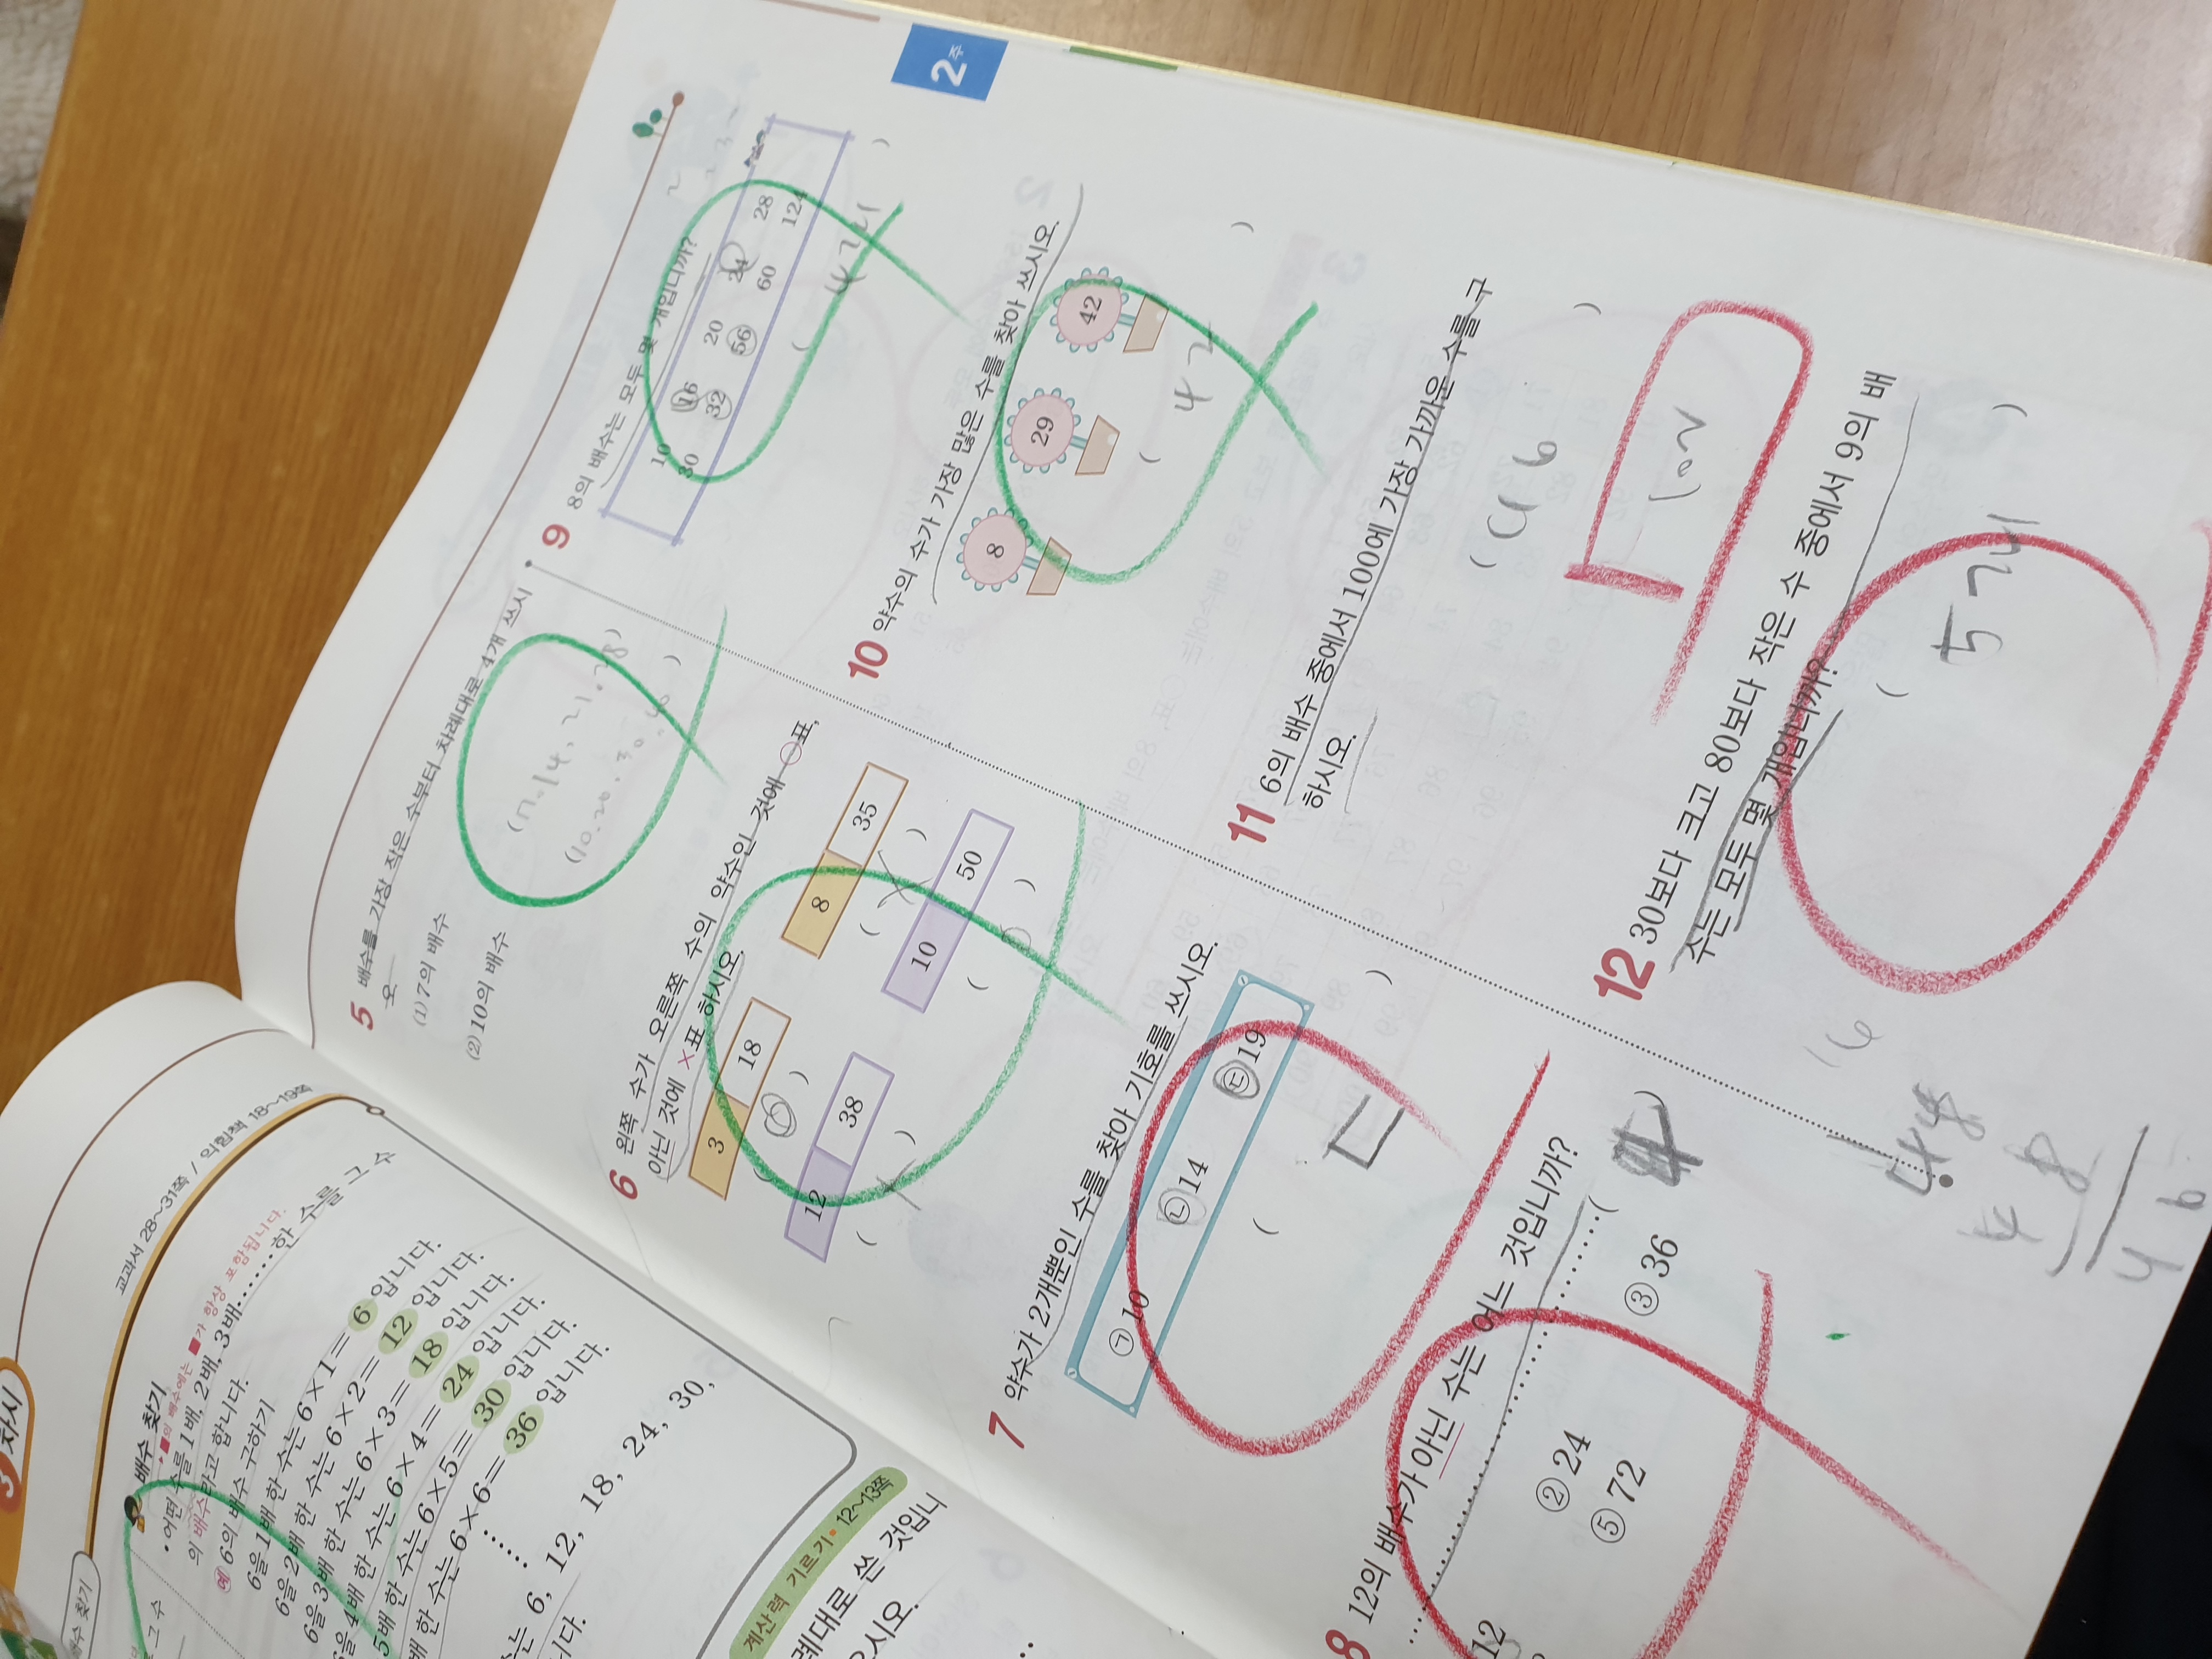 3차시
배수 찾기
교과서 28~31쪽 / 익힘책 18~19쪽
배수 찾기
■의 배수에는 ■가 항상 포함됩니다.
• 어떤 수를 1배, 2배, 3배……한 수를 그 수
의 배수라고 합니다.
예 6의 배수 구하기
6을 1배 한 수는 6×1= 6 입니다.
6을 2배 한 수는 6×2= 12 입니다.
6을 3배 한 수는 6×3= 18 입니다.
6을 4배 한 수는 6×4= 24 입니다.
5배 한 수는 6×5= 30 입니다.
배 한 수는 6×6= 36 입니다.
수는 6, 12, 18, 24, 30,
니다.
그 수
계산력 기르기 • 12~13쪽
례대로 쓴 것입니
오시오.
5 배수를 가장 작은 수부터 차례대로 4개 쓰시
오.
(1) 7의 배수
(7. 14. 21. 28)
(2) 10의 배수
(10. 20. 30. 40)
6 왼쪽 수가 오른쪽 수의 약수인 것에 ○표,
아닌 것에 ×표 하시오.
3 18
8 35
( ○ ) ( × )
12 38
10 50
7 약수가 2개뿐인 수를 찾아 기호를 쓰시오.
㉠ 10 ㉡ 14 ㉢ 19
( ㄷ )
8 12의 배수가 아닌 수는 어느 것입니까?
……( 4 )
12 ② 24 ③ 36
⑤ 72
2주
9 8의 배수는 모두 몇 개입니까?
10 16 20 24 28
30 32 56 60 124
( 4개 )
10 약수의 수가 가장 많은 수를 찾아 쓰시오.
8 29 42
( 42 )
11 6의 배수 중에서 100에 가장 가까운 수를 구
하시오.
102
12 30보다 크고 80보다 작은 수 중에서 9의 배
수는 모두 몇 개입니까?
( 5개 )
16